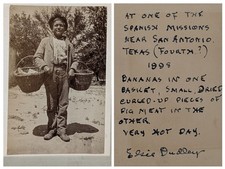 AT ONE OF THE
SPANISH MISSIONS
NEAR SAN ANTONIO,
TEXAS (FOURTH?)
BANANAS IN ONE
BASKET, SMALL, DRIED
CURLED-UP PIECES OF
PIG MEAT IN THE
OTHER.
VERY HOT DAY.
Dudley